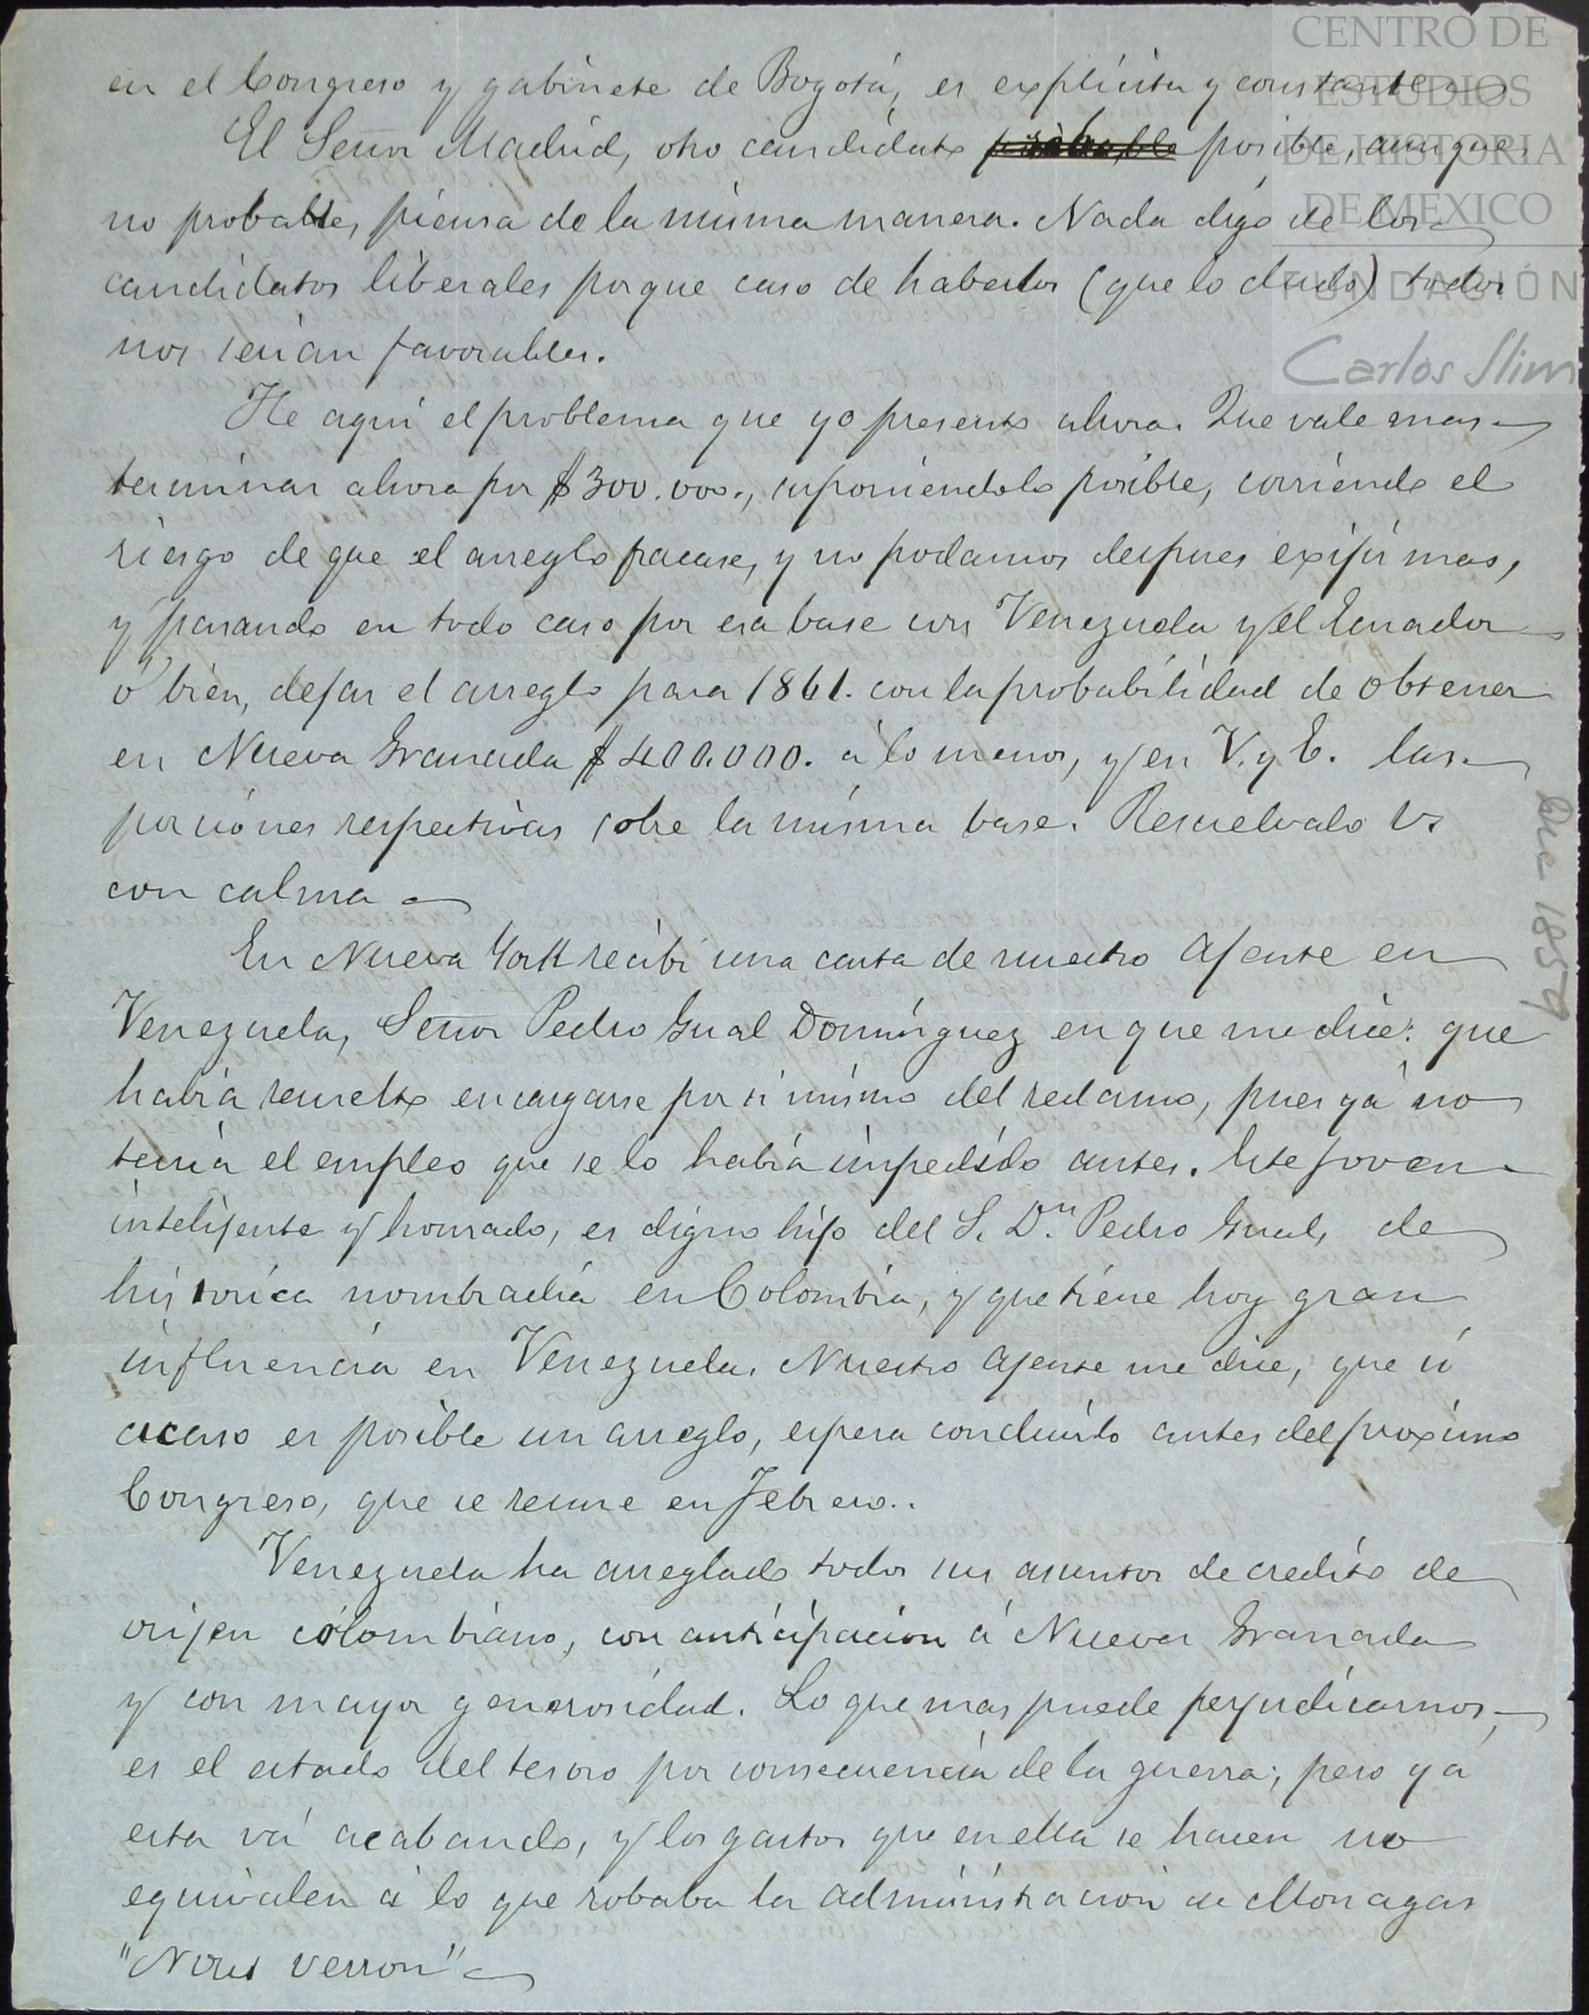 CENTRO DE
ESTUDIOS
DE HISTORIA
DE MÉXICO
FUNDACIÓN
Carlos Slim
en el Congreso y gabinete de Bogotá, es explícita y constante
El Señor Madrid, otro candidato probable posible, aunque
no probable, piensa de la misma manera. Nada digo de los
candidatos liberales porque caso de haberlos (que lo dudo) todos
nos serían favorables.
He aquí el problema que yo presento ahora. Que vale mas
terminar ahora por $300.000., suponiendolo posible, corriendo el
riesgo de que el arreglo fracase, y no podamos despues exijir mas,
y pasando en todo caso por esa base con Venezuela y el Ecuador
ó bien, dejar el arreglo para 1861. con la probabilidad de obtener
en Nueva Granada $400.000. á lo menos, y en V. y E. las
porciones respectivas sobre la misma base. Resuelvalo V.
con calma
En Nueva York recibí una carta de nuestro Ajente en
Venezuela, Señor Pedro Gual Domínguez en que me dice: que
había resuelto encargarse por sí mismo del reclamo, pues yá no
tenía el empleo que se lo había impedido antes. Este joven
intelijente y honrado, es digno hijo del S. Dn. Pedro Gual, de
histórica nombradía en Colombia, y que tiene hoy gran
influencia en Venezuela. Nuestro Ajente me dice, que si
acaso es posible un arreglo, espera concluirlo antes del proximo
Congreso, que se reune en Febrero..
Venezuela ha arreglado todos sus asuntos de credito de
oríjen colombiano, con anticipacion á Nueva Granada
y con mayor generosidad. Lo que mas puede perjudicarnos,
es el estado del tesoro por consecuencia de la guerra; pero yá
esta vá acabando, y los gastos que en ella se hacen no
equivalen á lo que robaba la administracion de Monagas
"Nous verron"
Dic 1859